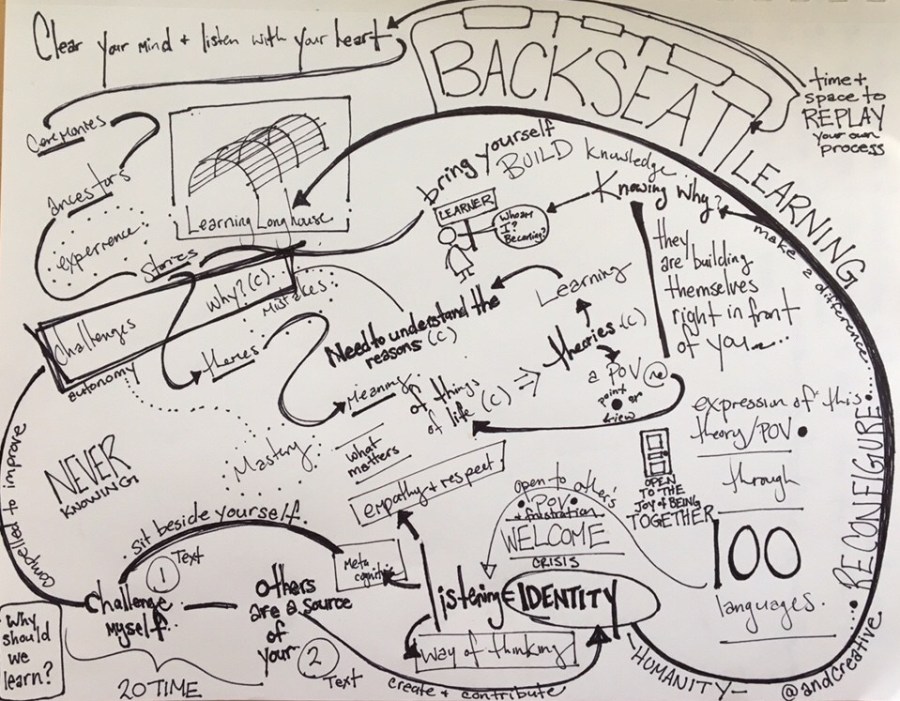 Clear your mind + listen with your heart
BACKSEAT LEARNING
time +
space to
REPLAY
your own
process
Ceremonies
Ancestors
experience
Stories
Learning Longhouse
bring yourself
BUILD knowledge
LEARNER
Who am
I?
Becoming?
Knowing Why?
make a difference...
they
are building
themselves
right in front
of you
Challenges
why? (c).
Mistakes
autonomy
themes
Need to understand the
reasons (c)
Learning
theories (c)
a POV
point
of
view
(re)
Meaning
of things
of life (c)
what
matters
empathy + respect
Mastery
NEVER
KNOWING
compelled to improve
expression of this
theory/POV
through
100
languages.
RECONFIGURE...
OPEN
TO THE
JOY of BEING
TOGETHER
open to other's
POV
+ frustration
WELCOME
CRISIS
sit beside yourself.
1 Text
Meta
cognition
Challenge
Myself
others
are a source
of
your
2 Text
listening = IDENTITY
way of thinking
Why
should
we
learn?
20TIME
create + contribute
HUMANITY
@andCreative